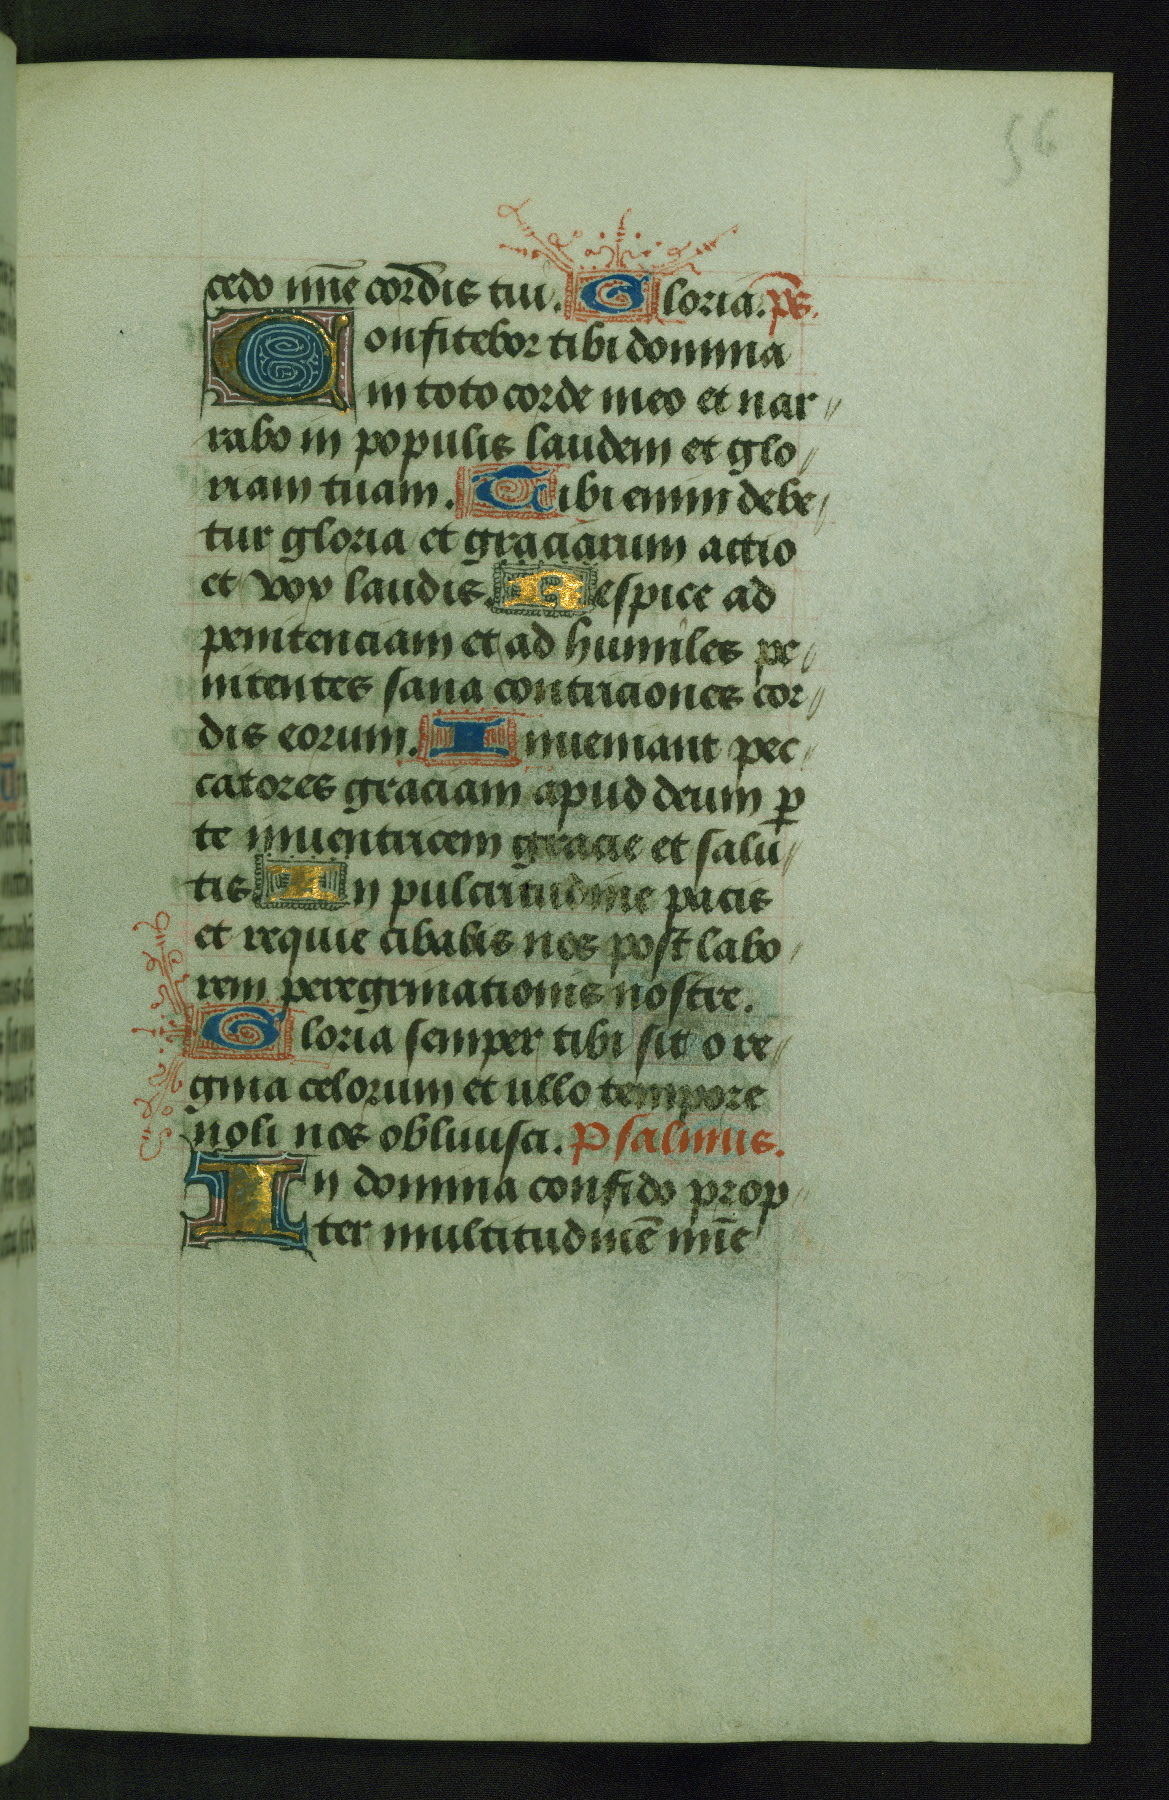 56
cedo im̄e cordis tui. Gloria. ps̄.
Confitebor tibi domina
in toto corde meo et nar
rabo in populis laudem et glo
riam tuam. Tibi enim debe
tur gloria et graciarum actio
et vox laudis. Respice ad
penitenciam et ad humiles pe
nitentes sana contriciones cor
dis eorum. Inueniant pec
catores graciam apud deum ꝑ
te inuentricem gracie et salu
tis. In pulcritudine pacis
et requie cibabis nos post labo
rem peregrinationis nostre.
Gloria semper tibi sit o re
gina celorum et ullo tempore
noli nos obliuisci. Psalmus.
In domina confido prop
ter multitudinē im̄e